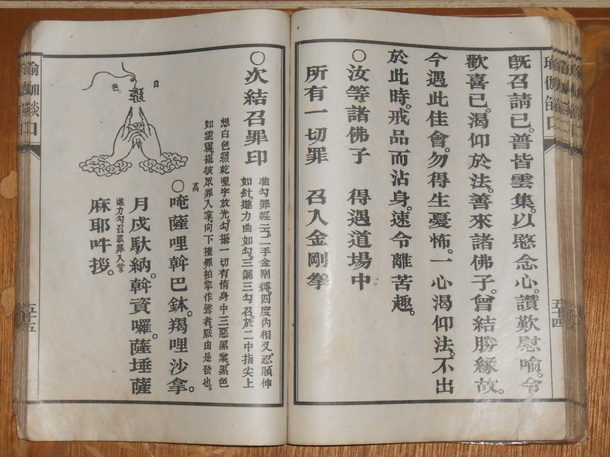 瑜伽焰口
五十四
既召請已。普皆雲集。以愍念心。讚歎慰喻。令
歡喜已。渴仰於法。善來諸佛子。曾結勝緣故。
今遇此佳會。勿得生憂怖。一心渴仰法。不出
於此時。戒品而沾身。速令離苦趣。
○汝等諸佛子 得遇道場中
所有一切罪 召入金剛拳
○次結召罪印
准勾罪經云。二手金剛縛四度內相叉。忍願伸
如針進力曲如勾。三誦三勾召於二中指尖上
想白色 哩字放光。勾攝一切有情身中三惡黑業。黑色
如雲霧。攝彼眾罪入掌。向下摧罪拍掌作聲者。 由是發也。
○唵薩哩斡巴鉢。羯哩沙拏。
月戍馱納。斡資囉。薩埵薩
進力勾召眾罪入掌
麻耶吽拶。
白
色
瑜伽燄口
五十五